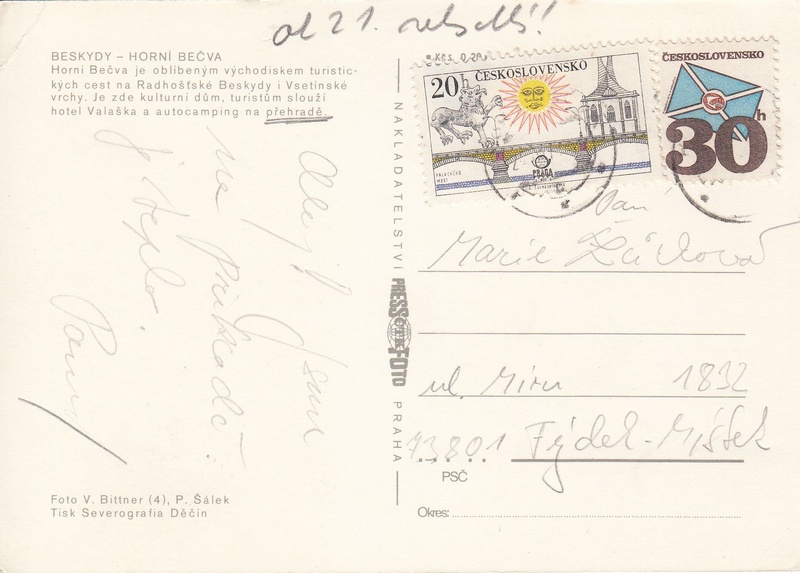 od 21.
BESKYDY – HORNÍ BEČVA
Horní Bečva je oblíbeným východiskem turistic-
kých cest na Radhošťské Beskydy i Vsetínské
vrchy. Je zde kulturní dům, turistům slouží
hotel Valaška a autocamping na přehradě.
Jsem
na
je teplo.
Foto V. Bittner (4), P. Šálek
Tisk Severografia Děčín
NAKLADATELSTVÍ
PRESSFOTO
PRAHA
20h ČESKOSLOVENSKO
PALACKÉHO
MOST
PRAGA
ČESKOSLOVENSKO
30h
Marie
ul. Míru 1832
73801 Frýdek-Místek
PSČ
Okres: